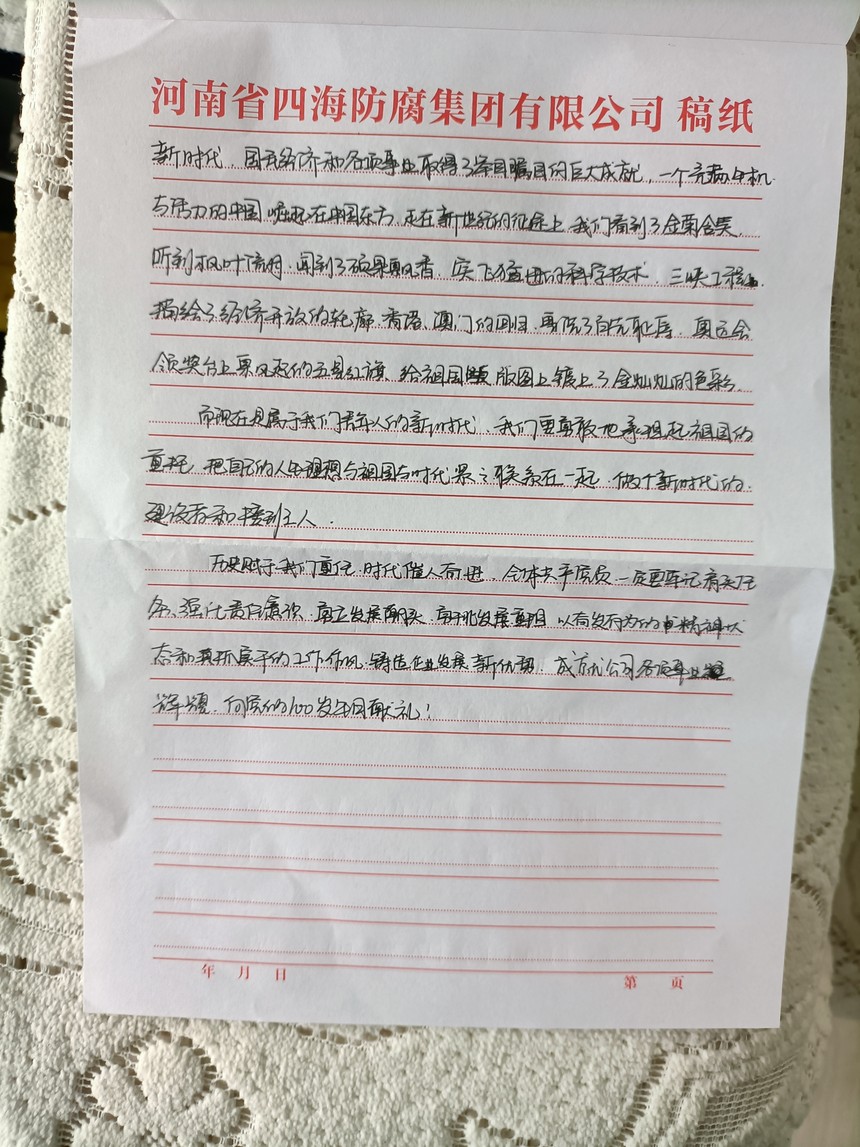 河南省四海防腐集团有限公司 稿纸
新时代，国民经济和各项事业取得了举目瞩目的巨大成就，一个充满生机
与活力的中国，崛起在中国东方，走在新世纪的征途上，我们看到了金栗含笑
听到枫叶流丹，闻到了硕果飘香，突飞猛进的科学技术，三峡工程
描绘了经济开放的轮廓，香港、澳门的回归，更洗了百克耻辱，奥运会
领奖台上飘起的五星红旗，给祖国版图上镀上了金灿灿的色彩。
而现在是属于我们青年人的新时代，我们要勇敢地承担起祖国的
重托，把自己的人生理想与祖国与时代紧紧联系在一起，做个新时代的
建设者和接班人。
历史赋予我们重任，时代催人奋进，全体共产党员一定要牢记肩头任
务，强化责任意识，肩立发展潮头，勇于挑发展重担，以奋发有为的精神状
态和真抓实干的工作作风，铸造企业发展新优势，成就公司各项事业
辉煌，向党的100岁生日献礼！
年 月 日
第 页